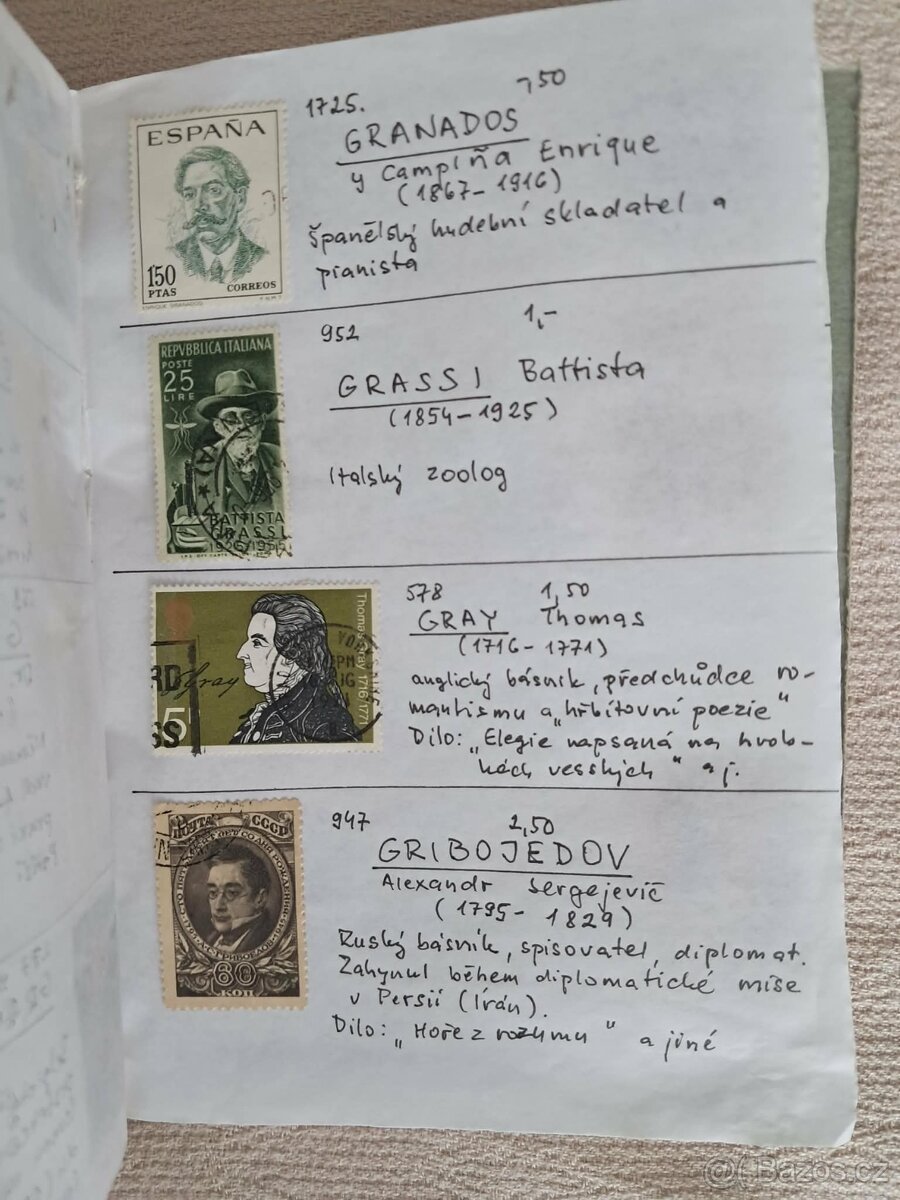 ESPAÑA
150
PTAS
CORREOS
ENRIQUE GRANADOS
F.N.M.T.
1725.
7,50
GRANADOS
y Campiña Enrique
(1867-1916)
Španělský hudební skladatel a
pianista
REPVBBLICA ITALIANA
POSTE
25
LIRE
BATTISTA
GRASSI
1925/1955
952
1,-
GRASSI Battista
(1854-1925)
Italský zoolog
Thomas Gray 1716/1771
Gray
5
578
1,50
GRAY Thomas
(1716-1771)
anglický básník, předchůdce ro-
mantismu a „hřbitovní poezie"
Dílo: „Elegie napsaná na hrob-
kách vesských" aj.
ПОЧТА СССР
60
КОП
947
2,50
GRIBOJEDOV
Alexandr Sergejevič
(1795-1829)
Ruský básník, spisovatel, diplomat.
Zahynul během diplomatické mise
v Persii (Írán).
Dílo: „Hoře z rozumu" a jiné
Bazos.cz